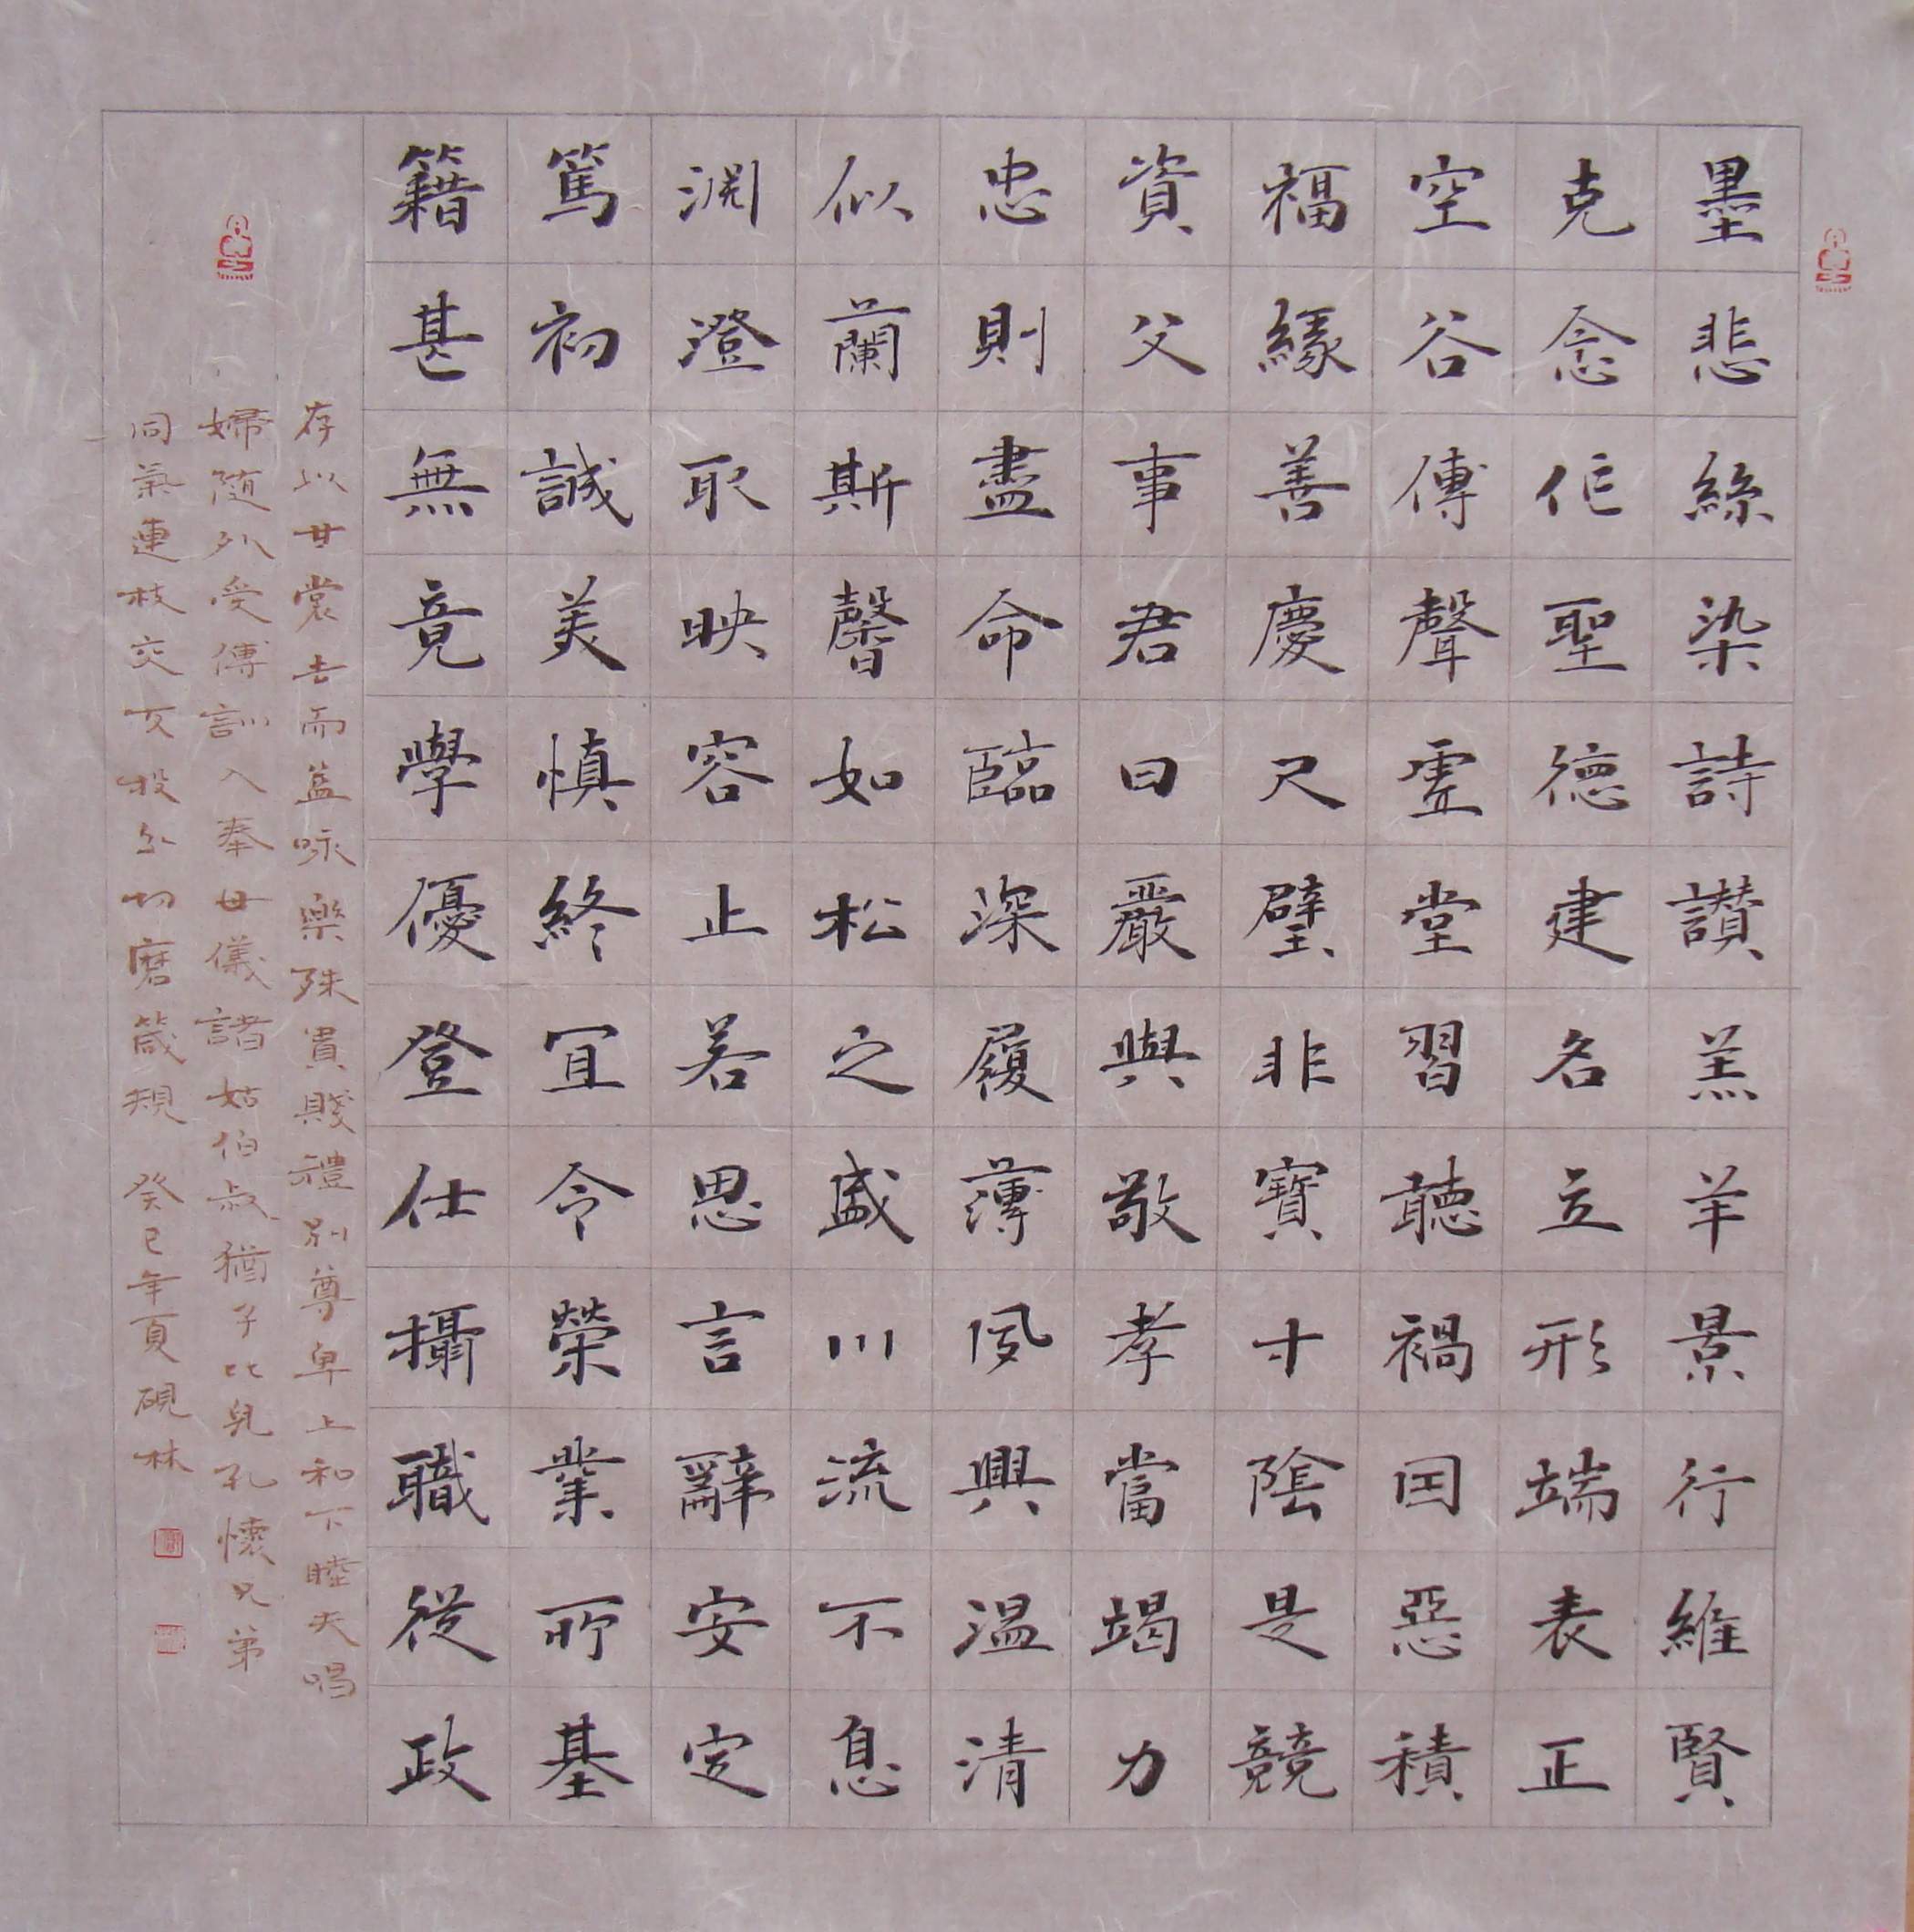 墨悲絲染詩讃羔羊景行維賢
克念作聖德建名立形端表正
空谷傳聲虛堂習聽禍因惡積
福緣善慶尺璧非寶寸陰是競
資父事君曰嚴與敬孝當竭力
忠則盡命臨深履薄夙興温清
似蘭斯馨如松之盛川流不息
淵澄取映容止若思言辭安定
篤初誠美慎終宜令榮業所基
籍甚無竟學優登仕攝職從政
存以甘棠去而益咏樂殊貴賤禮別尊卑上和下睦夫唱
婦隨外受傅訓入奉母儀諸姑伯叔猶子比兒孔懷兄弟
同氣連枝交友投分切磨箴規 癸巳年夏硯林